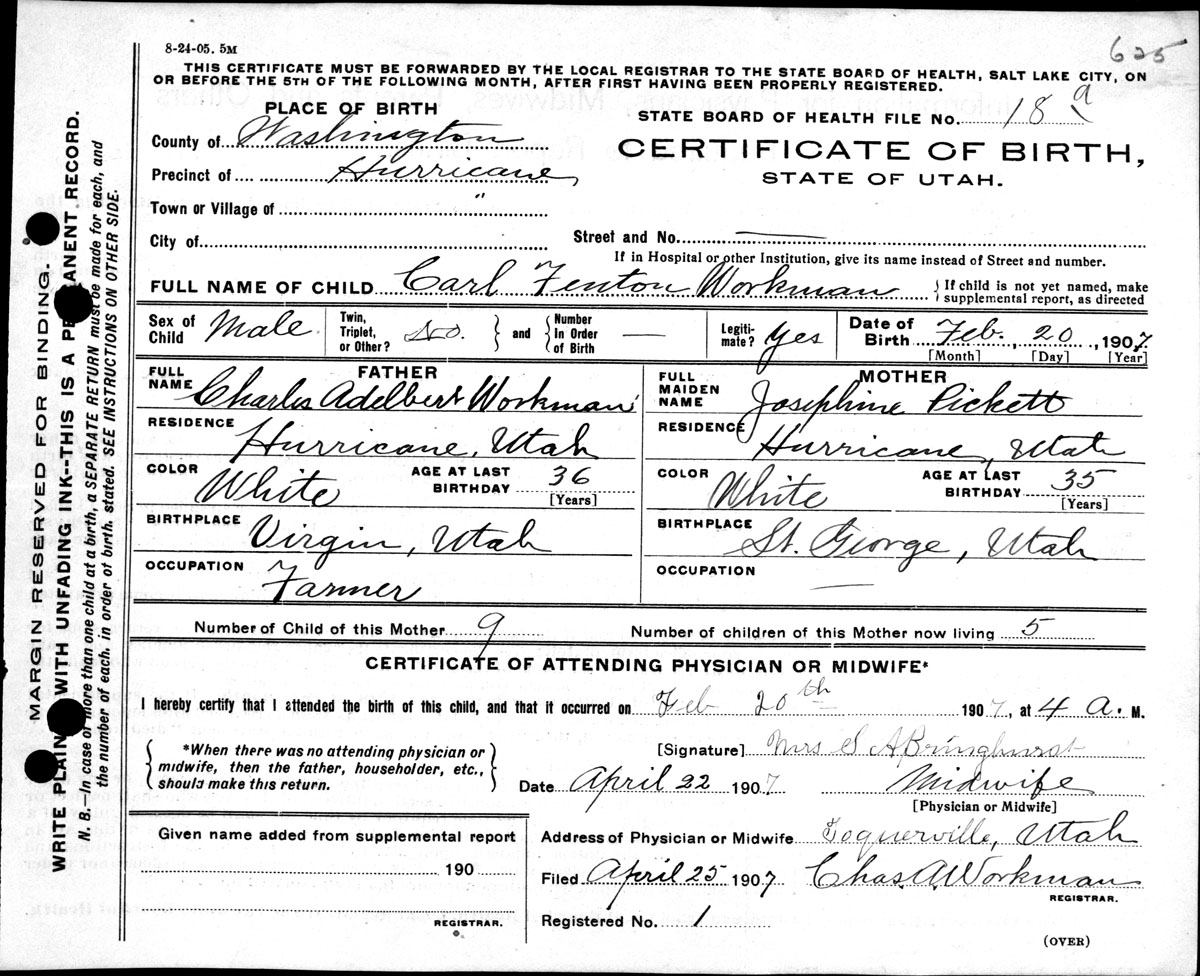 8-24-05. 5M
625
THIS CERTIFICATE MUST BE FORWARDED BY THE LOCAL REGISTRAR TO THE STATE BOARD OF HEALTH, SALT LAKE CITY, ON
OR BEFORE THE 5TH OF THE FOLLOWING MONTH, AFTER FIRST HAVING BEEN PROPERLY REGISTERED.
PLACE OF BIRTH
STATE BOARD OF HEALTH FILE No. 18 a
County of Washington
CERTIFICATE OF BIRTH,
STATE OF UTAH.
Precinct of Hurricane,
Town or Village of "
City of Street and No. —
If in Hospital or other Institution, give its name instead of Street and number.
FULL NAME OF CHILD Carl Fenton Workman { If child is not yet named, make
supplemental report, as directed
Sex of Child Male Twin, Triplet, or Other? No. } and { Number In Order of Birth — Legiti- mate? Yes Date of Birth Feb. 20, 1907.
[Month] [Day] [Year]
FATHER MOTHER
FULL NAME Charles Adelbert Workman FULL MAIDEN NAME Josephine Pickett
RESIDENCE Hurricane, Utah RESIDENCE Hurricane, Utah
COLOR White AGE AT LAST BIRTHDAY 36 [Years] COLOR White AGE AT LAST BIRTHDAY 35 [Years]
BIRTHPLACE Virgin, Utah BIRTHPLACE St. George, Utah
OCCUPATION Farmer OCCUPATION —
Number of Child of this Mother 9 Number of children of this Mother now living 5
CERTIFICATE OF ATTENDING PHYSICIAN OR MIDWIFE*
I hereby certify that I attended the birth of this child, and that it occurred on Feb 20th 1907, at 4 a. M.
{ *When there was no attending physician or
midwife, then the father, householder, etc.,
should make this return. }
[Signature] Mrs S A Bringhurst
Date April 22 1907 Midwife
[Physician or Midwife]
Given name added from supplemental report
190
REGISTRAR.
Address of Physician or Midwife Toquerville, Utah
Filed April 25 1907 Chas. A. Workman
REGISTRAR.
Registered No. 1
(OVER)
MARGIN RESERVED FOR BINDING.
WRITE PLAIN WITH UNFADING INK--THIS IS A PE ANENT RECORD.
N. B.—In case or more than one child at a birth, a SEPARATE RETURN must be made for each, and
the number of each, in order of birth, stated. SEE INSTRUCTIONS ON OTHER SIDE.